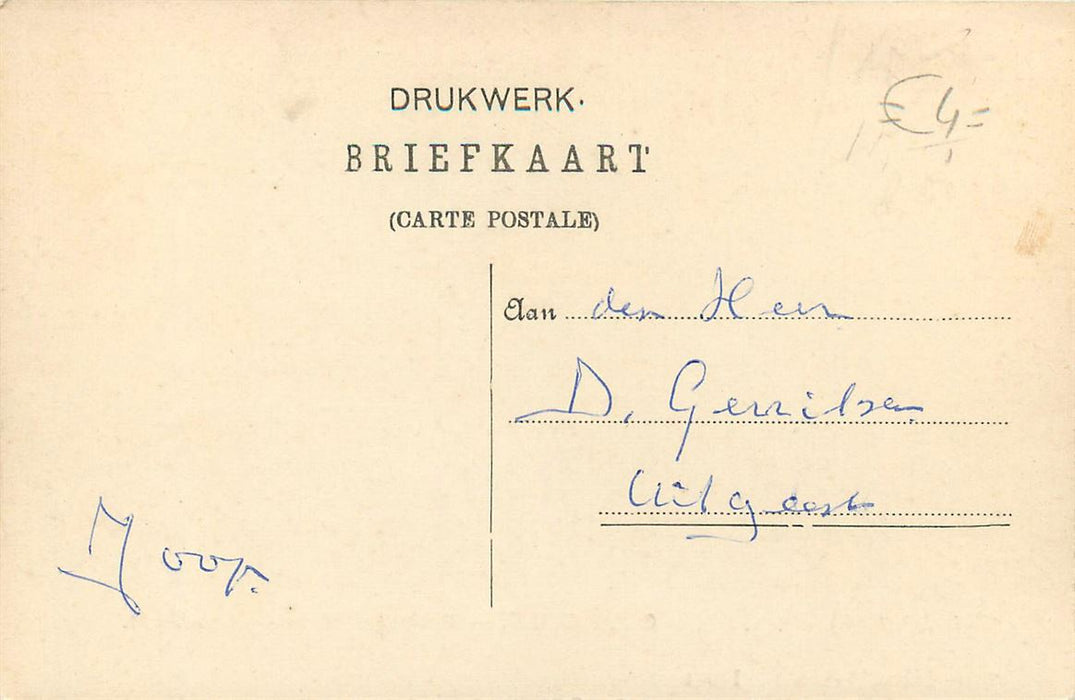 DRUKWERK.
€ 4,=
BRIEFKAART
(CARTE POSTALE)
Aan den Heer
D. Gerritsen.
Uitgeest
Joop.